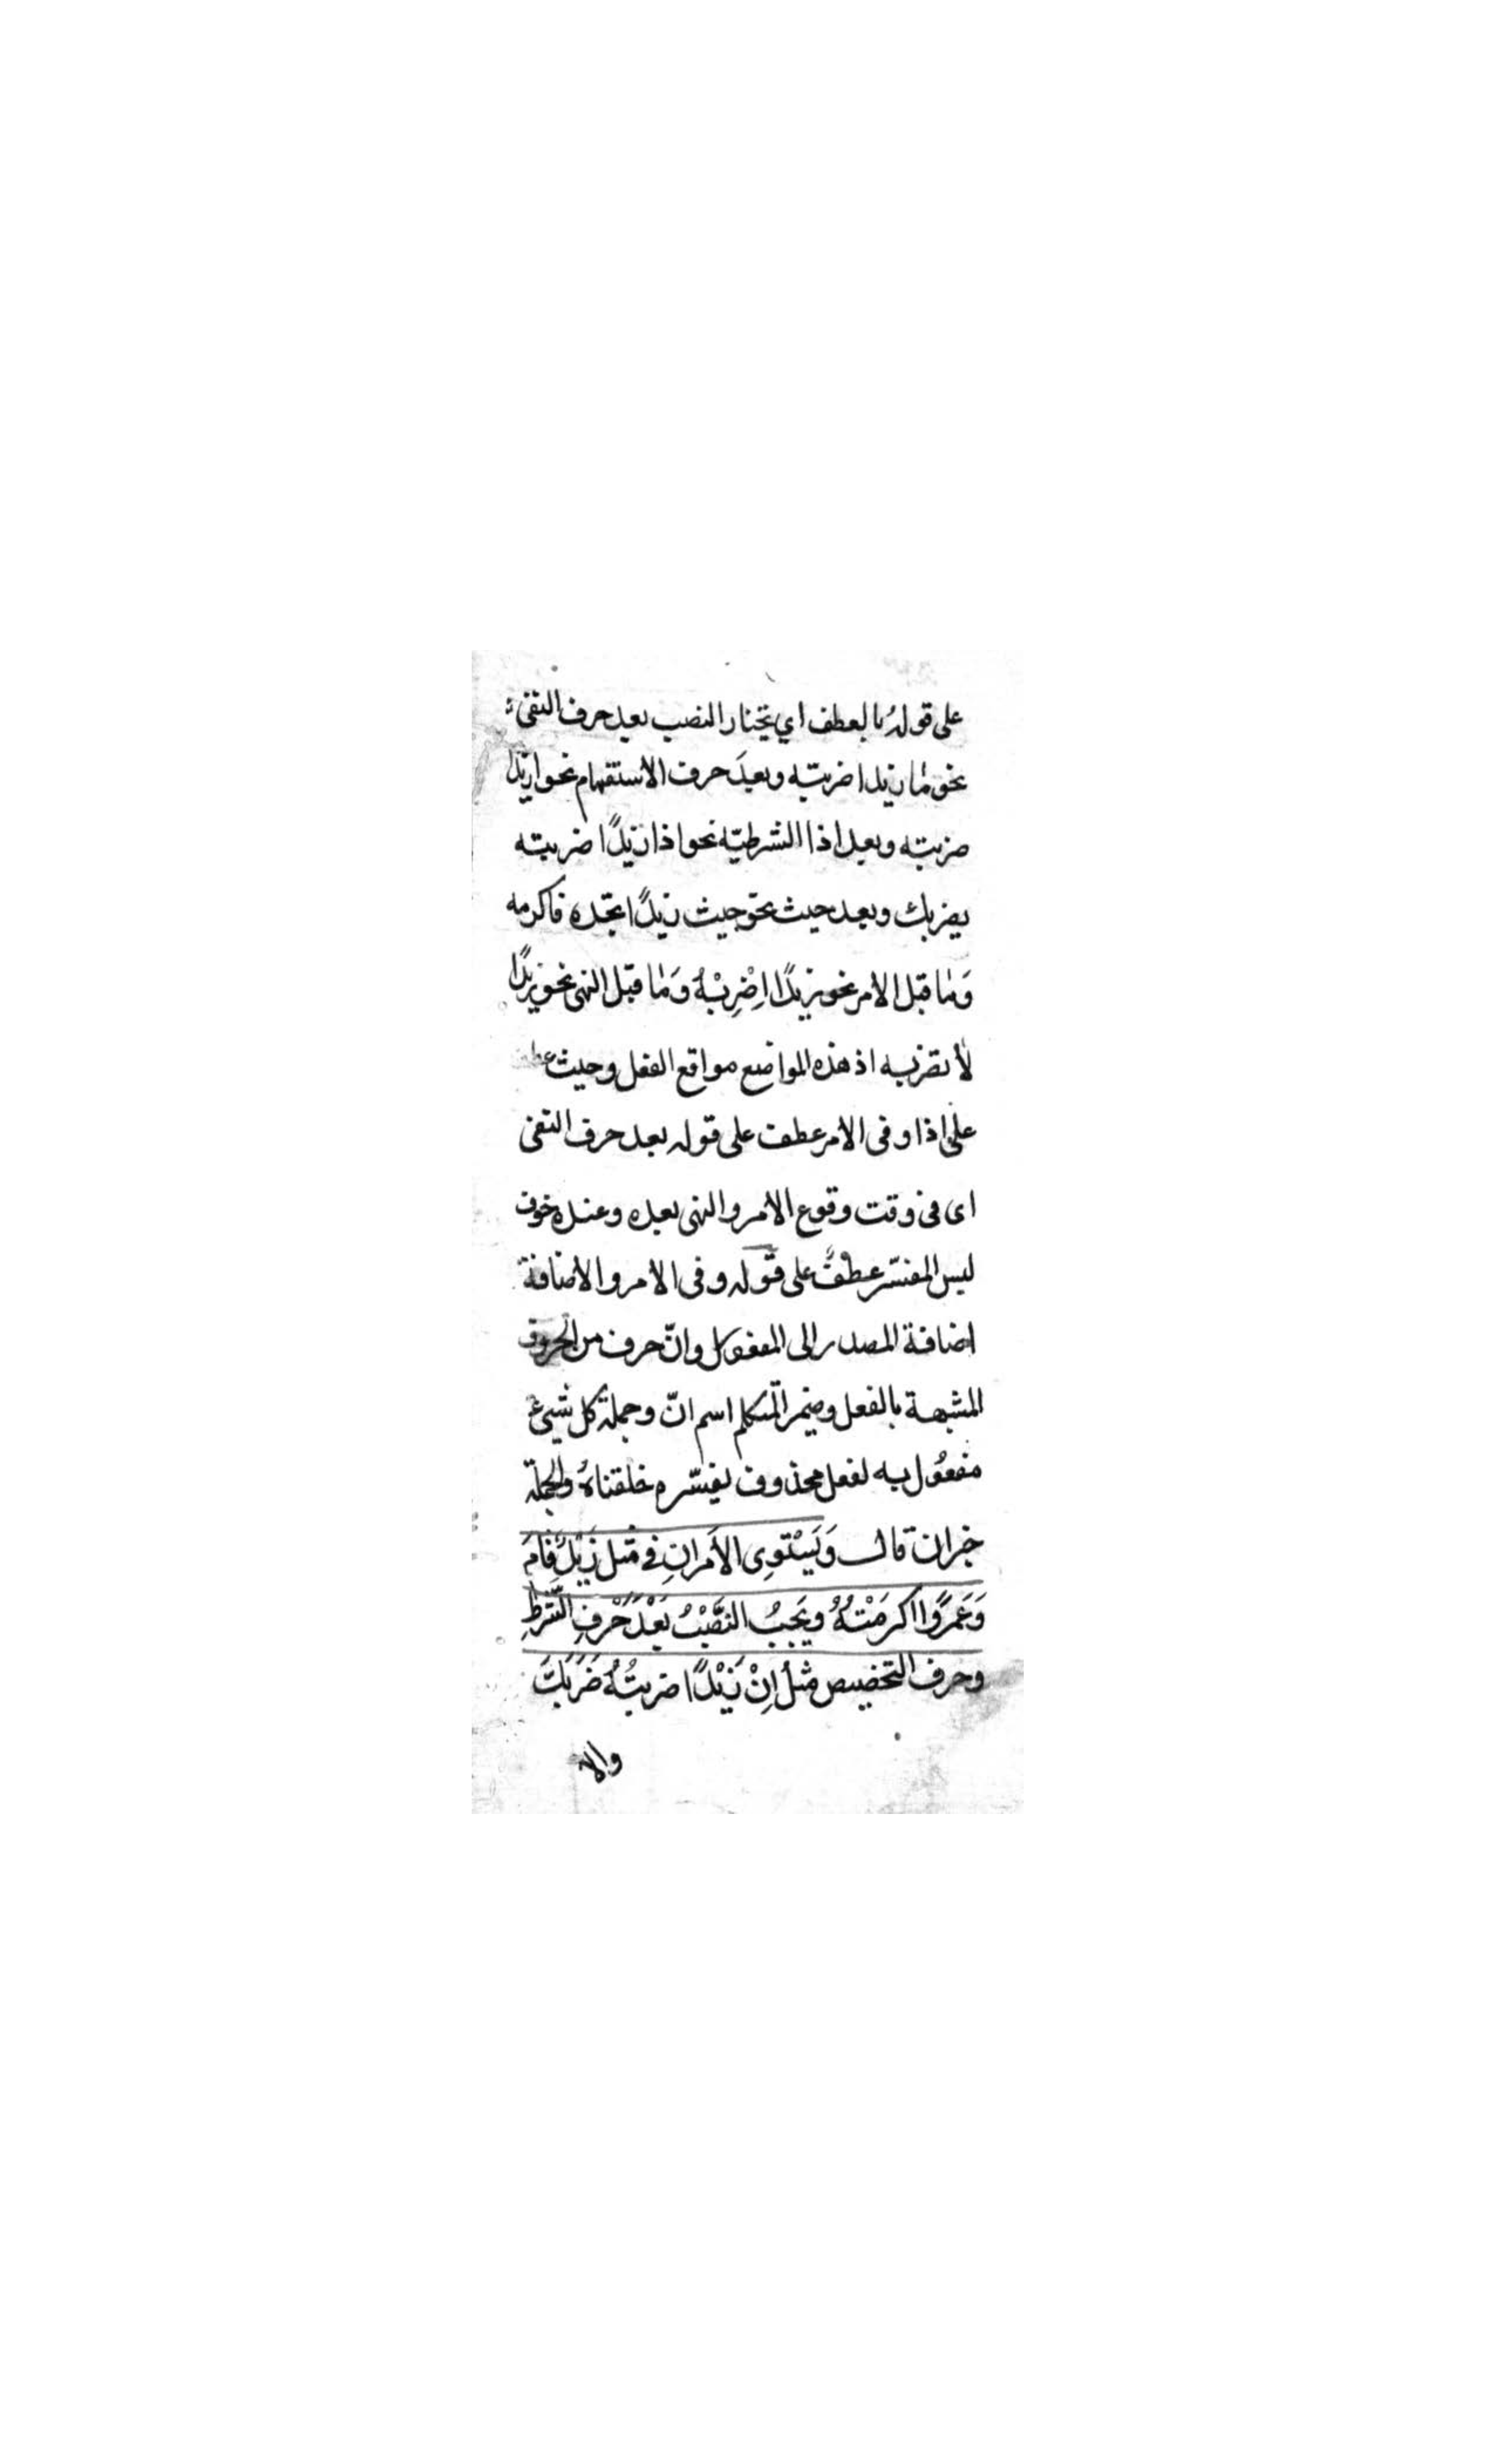 على قوله بالعطف اي يختار النصب بعد حرف النفى
نحو ما زيدا ضربته وبعدَ حرف الاستفهام نحو ازيدا
ضربته وبعد اذا الشرطيّه نحو اذا زيدًا ضربته
يضربك وبعد حيث نحو حيث زيدًا تجده فاكرمه
وَما قبل الامر نحو زيدًا اِضْرِبْهُ وَما قبل النهى نحو زيدًا
لا تضربه اذ هذه المواضع مواقع الفعل وحيث عطف
على اذا وفى الامر عطف على قوله بعد حرف النفى
اى فى وقت وقوع الامر والنهى بعده وعند خوف
لبس المفسّر عطفٌ على قوله وفى الامر والاضافة
اضافة المصدر الى المفعول وانّ حرف من الحروف
المشبهة بالفعل وضمير المتكلم اسم انّ وجملة كل شيئ
مفعُول به لفعل محذوف يفسّره خلقناهُ والجملة
خبر ان قال وَيَسْتَوِى الاَمرانِ فى مثل زَيْدٌ قامَ
وَعَمرًوا اكرمْتُهُ ويَجبُ النَّصْبُ بَعْدَ حَرْفِ الشَّرطِ
وحرف التخضيص مثلُ اِنْ زَيْدًا ضربتُهُ ضَرَبَكَ
والا